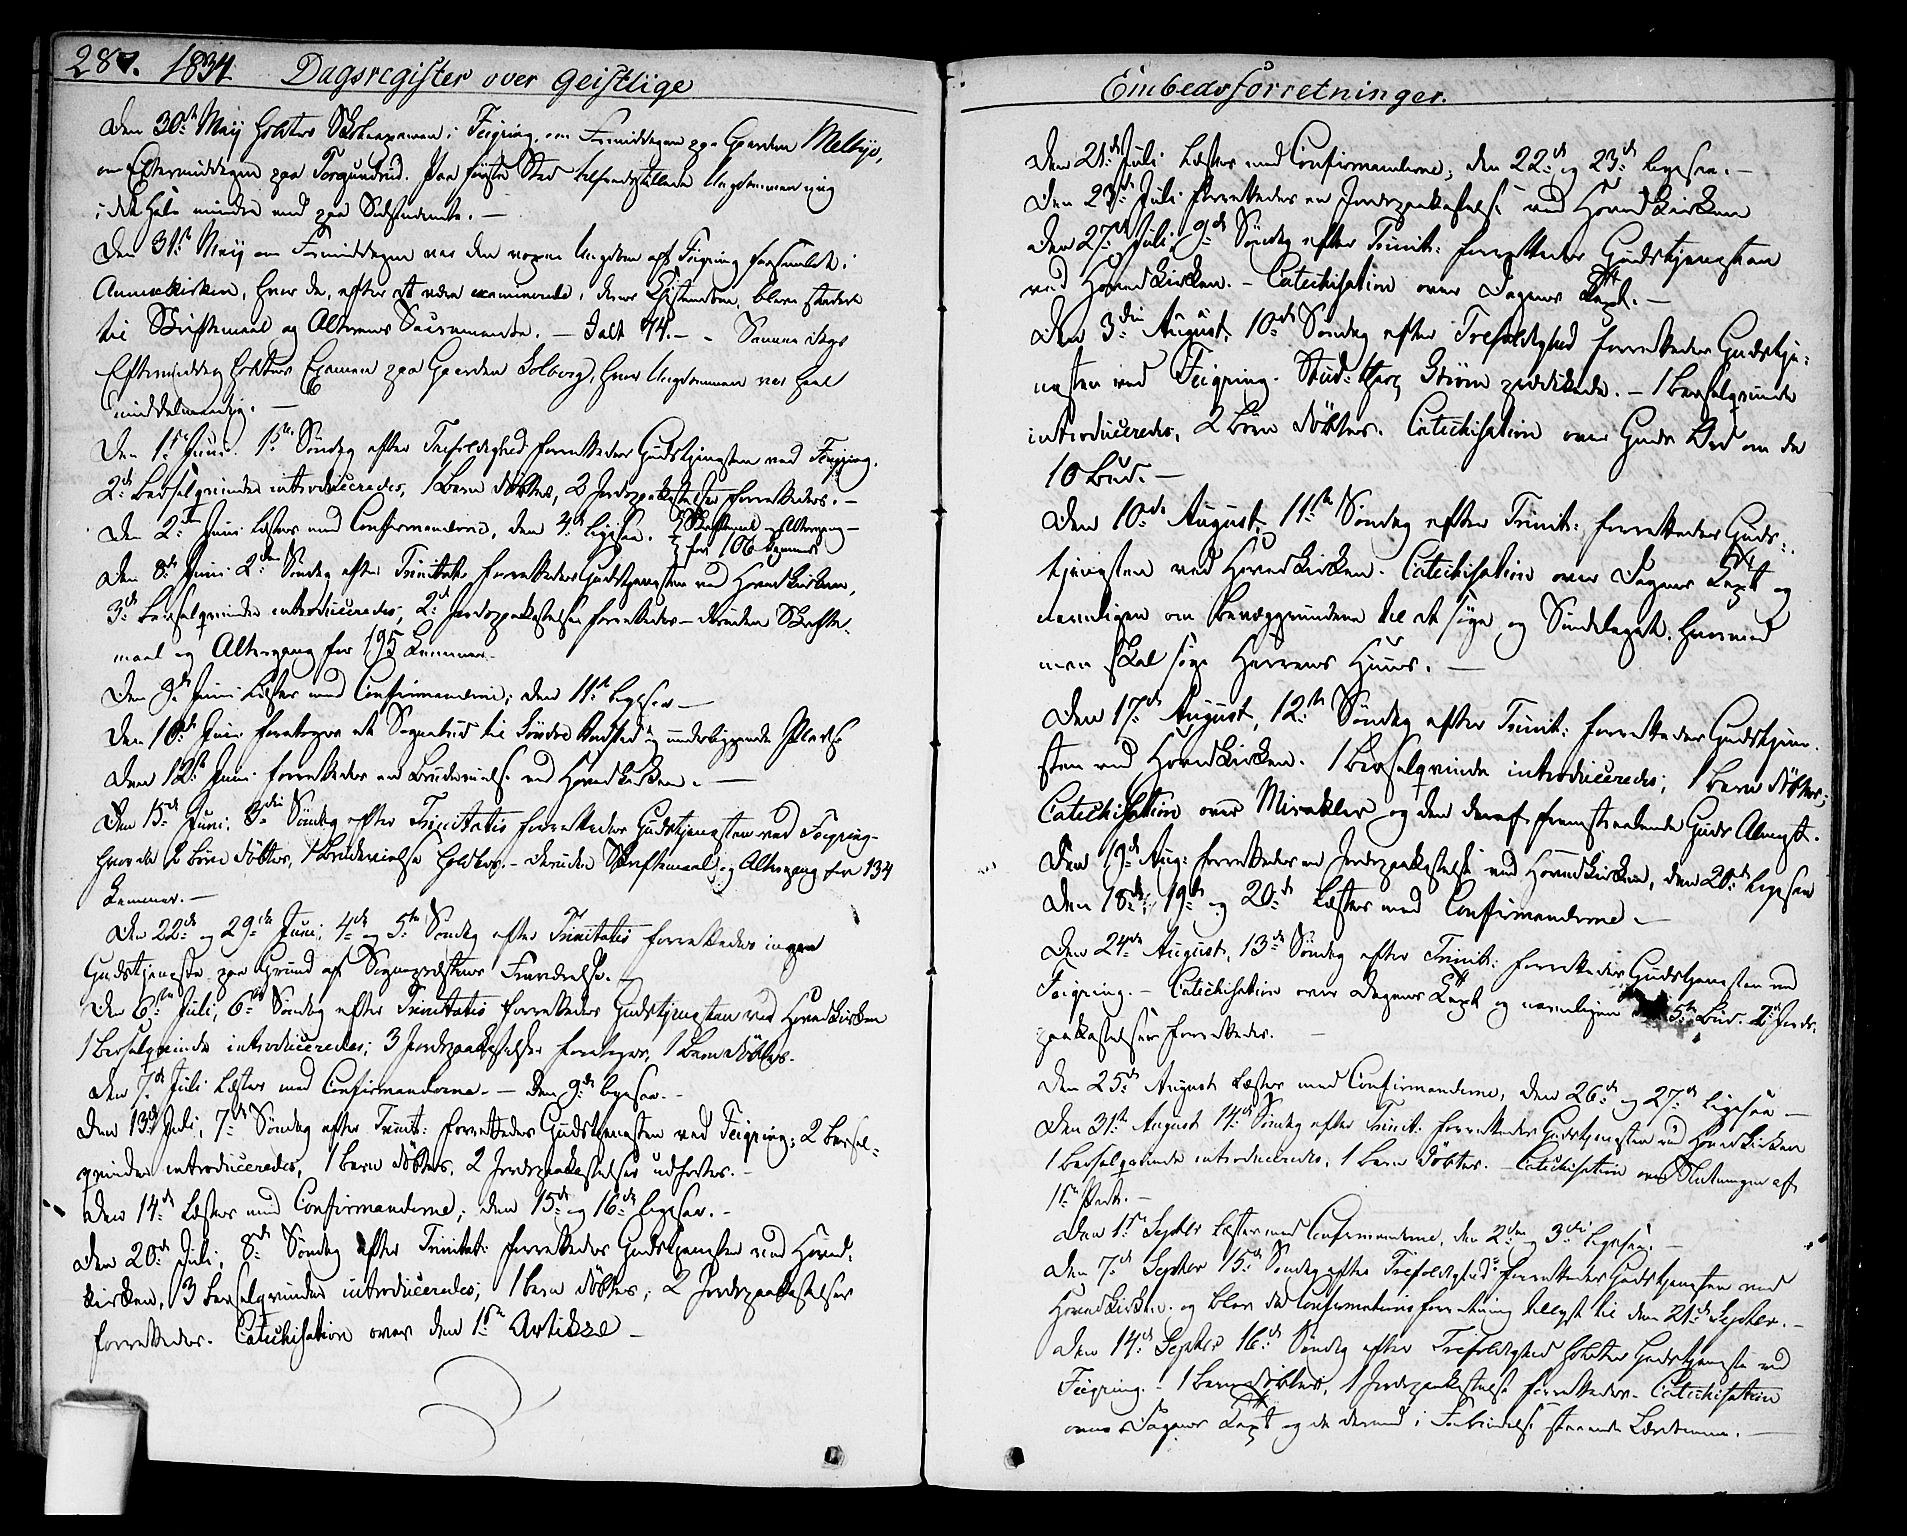 287. 1834. Dagsregister over geistlige
Den 30te Maij holdtes Skoleexamen i Feigring, om Formiddagen paa Gaarden Melbye,
om Eftermiddagen paa Torgunrud. Paa første Sted tilfredsstillede Ungdommen mig
i det Hele mindre end paa Sidstnævnte. —
Den 31te Maij om Formiddagen var den voxne Ungdom af Feigring forsamlet i
Annexkirken, hvor de, efter at være examinerede, i deres Christendom, bleve stedede
til Skriftemaal og Alterens Sacramente. — I alt 74. — Samme Dags
Eftermiddag holdtes Examen paa Gaarden Solberg, hvor Ungdommen var heel
middelmaadig. —
Den 1ste Juni. 1ste Søndag efter Trefoldighed forrettedes Gudstjenesten ved Feigring.
2de Barselqvinder introduceredes, 1 Barn døbtes, 2 Jordspaakastelser forrettedes. —
Den 2den Juni læstes med Confirmanderne, den 4de ligesaa. Skriftemaal og Altergang
for 106 Lemmer
Den 8de Juni 2den Søndag efter Trinitatis forrettedes Gudstjenesten ved Hovedkirken,
3de Barselqvinder introduceredes, 2de Jordspaakastelser forrettedes — desuden Skrifte-
maal og Altergang for 195 Lemmer —
Den 9de Juni læstes med Confirmanderne; den 11te ligesaa —
Den 10de Juni foretoges et Sognebud til Søndre og underliggende Pladse
Den 12te Juni forrettedes en Brudevielse ved Hovedkirken. —
Den 15de Juni, 3die Søndag efter Trinitatis forrettedes Gudstjenesten ved Feigring
hvor da 2 Børn døbtes, 1 Brudevielse holdtes. — desuden Skriftemaal og Altergang for 134
Lemmer. —
Den 22de og 29de Juni, 4de og 5te Søndag efter Trinitatis forrettedes ingen
Gudstjeneste paa Grund af Sognepræstens Fraværelse. —
Den 6te Juli, 6te Søndag efter Trinitatis forrettedes Gudstjenesten ved Hovedkirken
1 Barselqvinde introduceredes; 3 Jordspaakastelser foretoges, 1 Barn døbtes.
Den 7de Juli læstes med Confirmanderne. — Den 9de ligesaa. —
Den 13de Juli, 7de Søndag efter Trinit: forrettedes Gudstjenesten ved Feigring; 2 Barsel-
qvinder introduceredes, 1 Barn døbtes, 2 Jordspaakastelser udførtes. —
Den 14de læstes med Confirmanderne; den 15de og 16de ligesaa. —
Den 20de Juli, 8de Søndag efter Trinitat: forrettedes Gudstjenesten ved Hoved-
kirken, 3 Barselqvinder introduceredes, 1 Barn døbtes, 2 Jordspaakastelser
forrettedes. Catechisation over den 1ste Artikel —
Embedsforretninger.
Den 21de Juli læstes med Confirmanderne, den 22de og 23de ligesaa. —
Den 23de Juli forrettedes en Jordspaakastelse ved Hovedkirken
Den 27de Juli 9de Søndag efter Trinit: forrettedes Gudstjenesten
ved Hovedkirken. — Catechisation over Dagens Text. —
Den 3die August, 10de Søndag efter Trefoldighed forrettedes Gudstje-
nesten ved Feigring. Stud: theol: prædikede. — 1 Barselqvinde
introduceredes, 2 Børn døbtes. Catechisation over Guds Ord om de
10 Bud. —
Den 10de August, 11te Søndag efter Trinit: forrettedes Guds-
tjenesten ved Hovedkirken. Catechisation over Dagens Text og
navnligen om Bevæggrundene til at søge og Sindelaget hvormed
man skal søge Herrens Huus. —
Den 17de August, 12te Søndag efter Trinit: forrettedes Gudstjene-
sten ved Hovedkirken. 1 Barselqvinde introduceredes; 1 Barn døbtes;
Catechisation over Mirakler og den deraf fremstraalende Guds Almagt.
Den 19de Aug: forrettedes en Jordspaakastelse ved Hovedkirken, den 20de ligesaa
Den 18de, 19de og 20de læstes med Confirmanderne —
Den 24de August, 13de Søndag efter Trinit: forrettedes Gudstjenesten ved
Feigring. — Catechisation over Dagens Text og navnligen 5te Bud. 2de Jords-
paakastelser forrettedes. —
Den 25de August læstes med Confirmanderne, den 26de og 27de ligesaa —
Den 31te August 14de Søndag efter Trinit: forrettedes Gudstjenesten ved Hovedkirken
1 Barselqvinde introduceredes, 1 Barn døbtes. — Catechisation over Slutningen af
1ste Part. —
Den 1ste Septbr læstes med Confirmanderne, den 2den og 3die ligesaa. —
Den 7de Septbr 15de Søndag efter Trefoldighed forrettedes Gudstjenesten ved
Hovedkirken og blev da Confirmationsforretning tillyst til den 21de Septbr. —
Den 14de Septbr 16de Søndag efter Trefoldighed holdtes Gudstjeneste ved
Feigring. — 1 Barn døbtes, 1 Jordspaakastelse forrettedes. Catechisation
over Dagens Text og de dermed i Forbindelse staaende Lærdomme. —